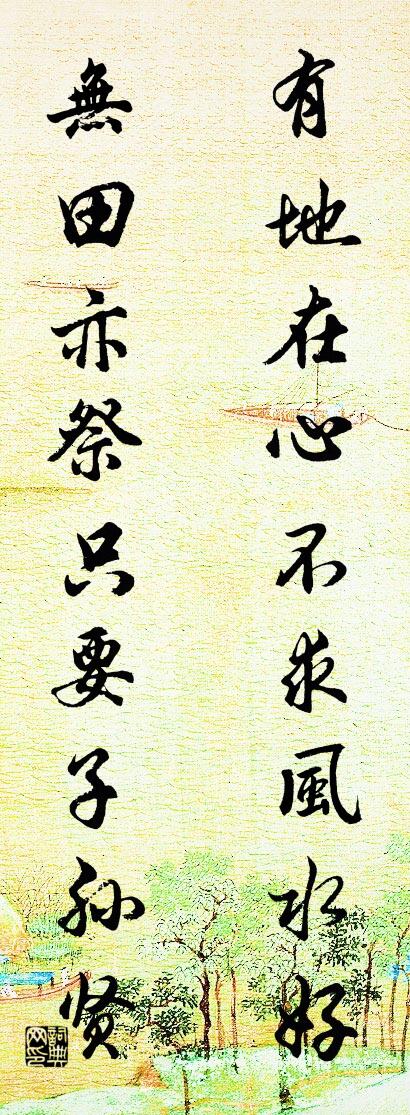 有地在心不求風水好
無田亦祭只要子孙贤
詞典网印